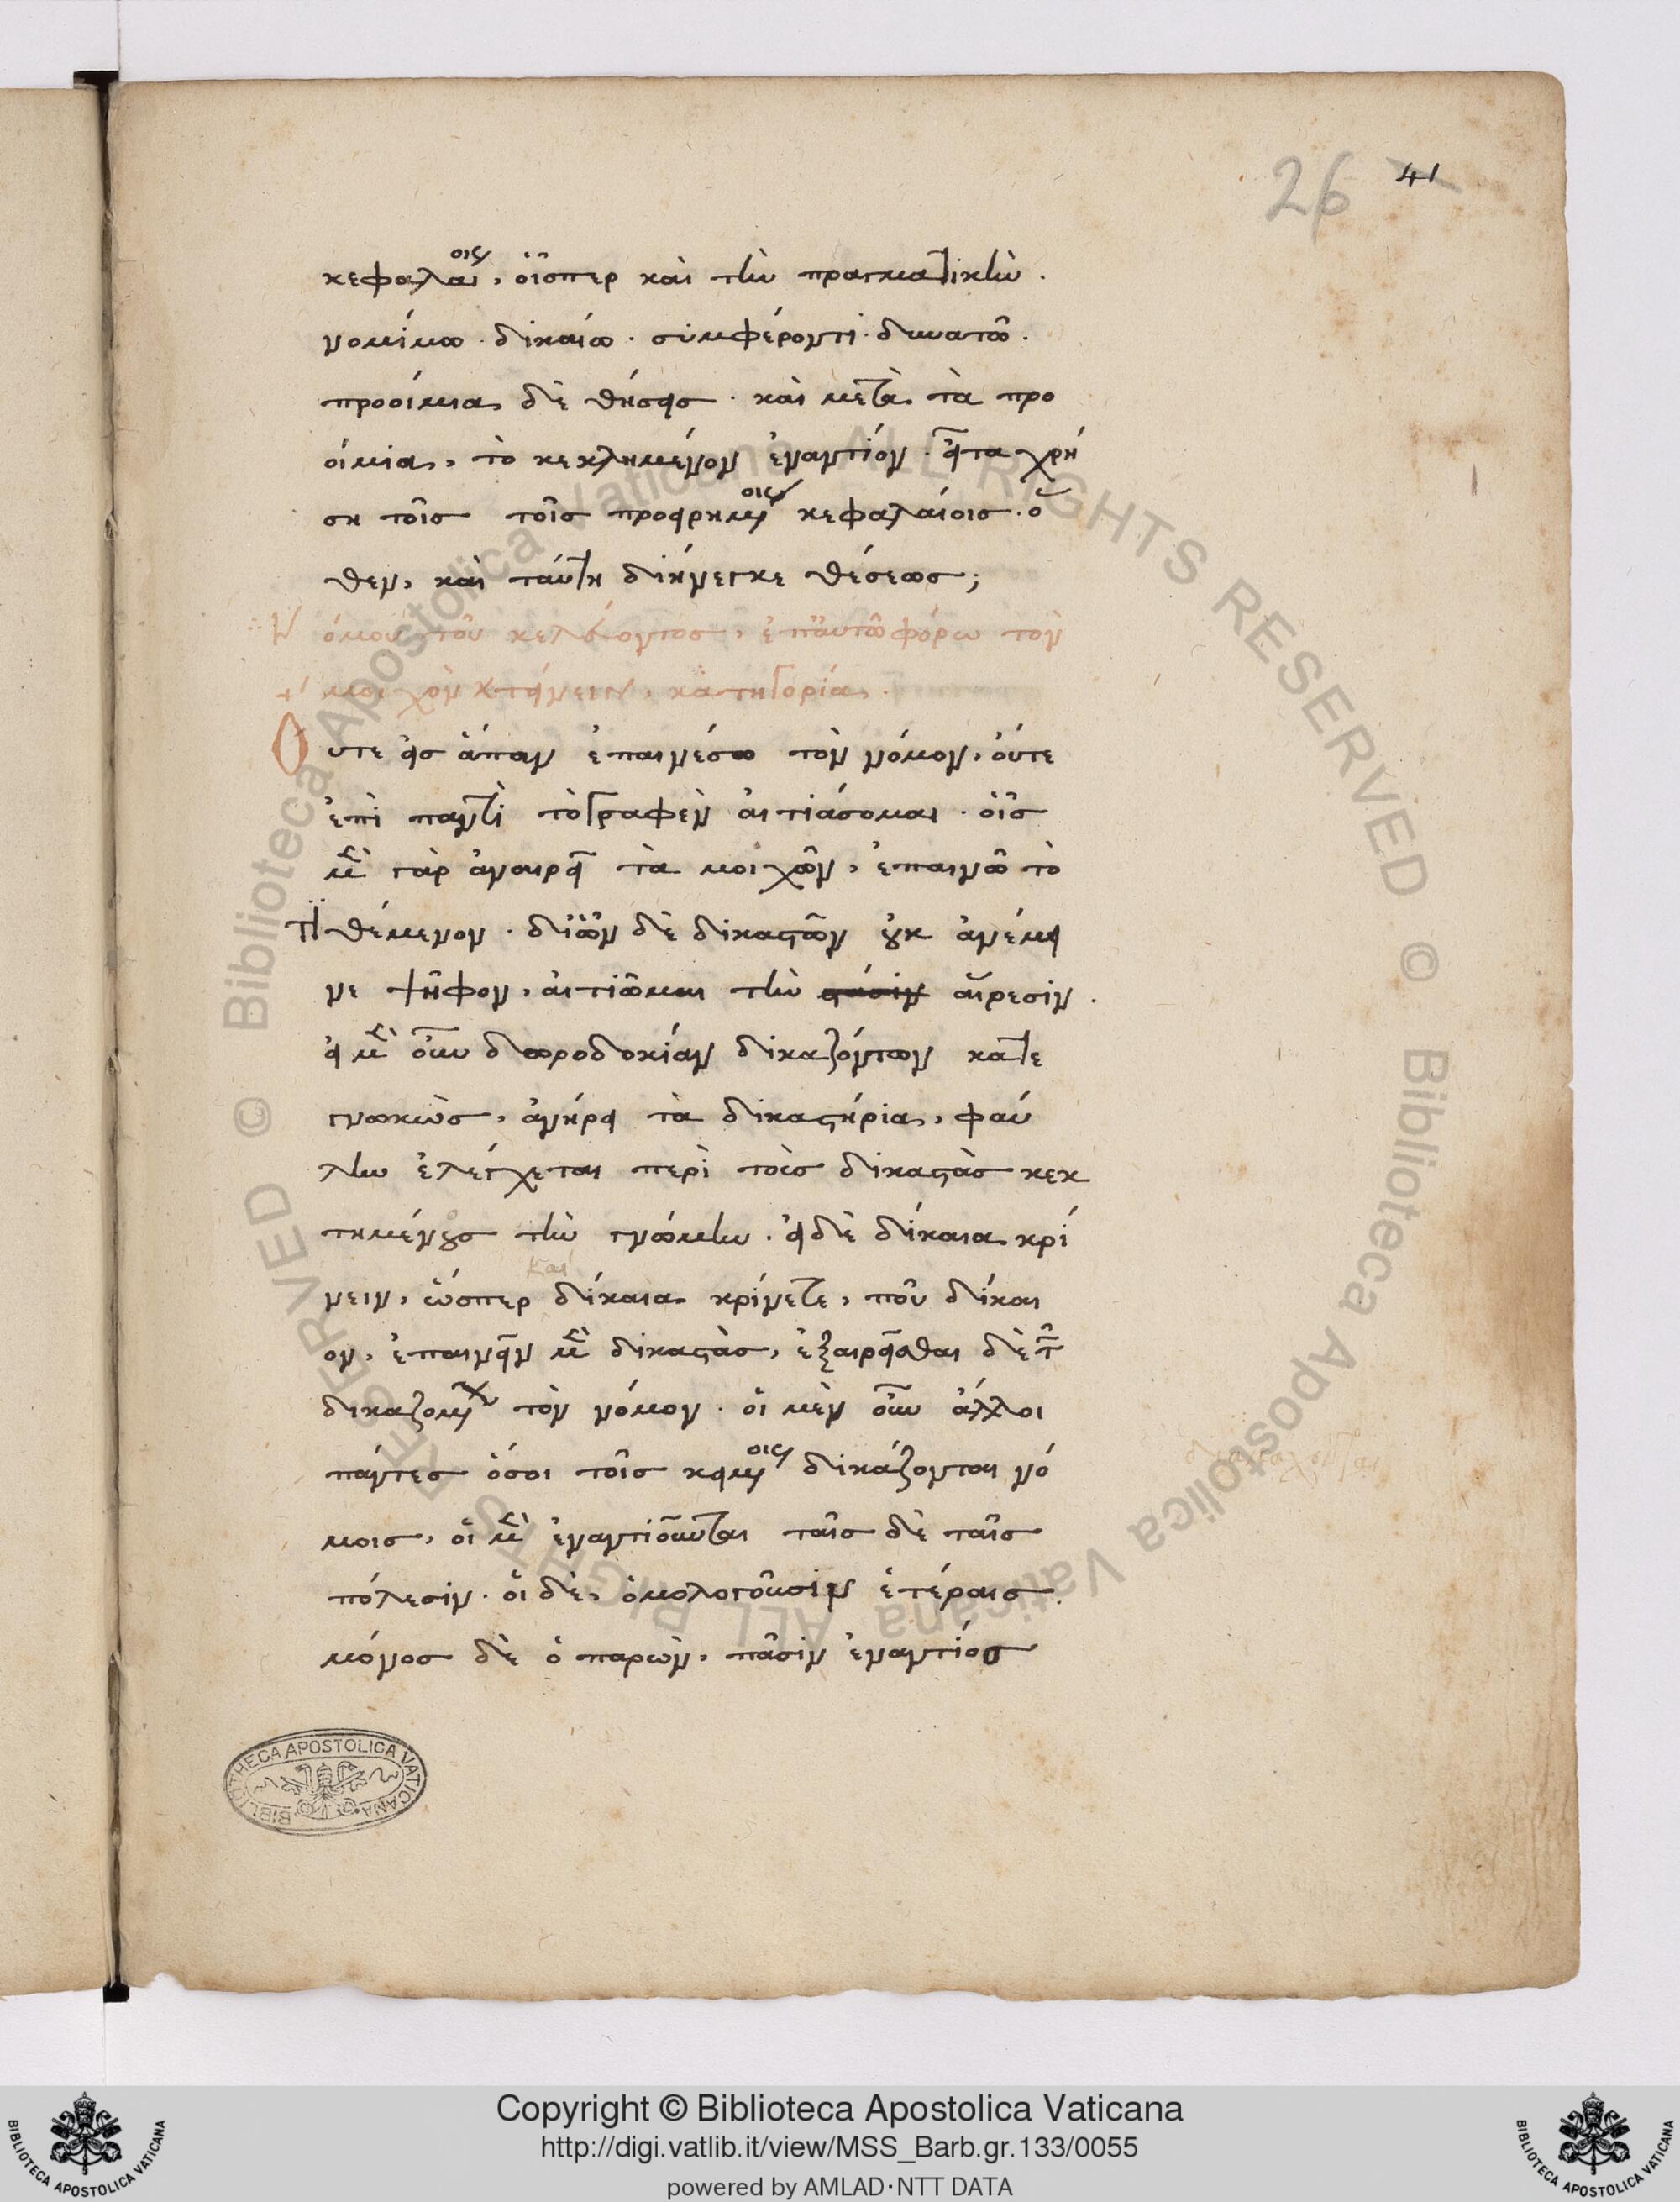 26 41
κεφαλαίοις, οἷσπερ καὶ τὴν πραγματικὴν·
νομίμω· δικαίω· συμφέροντι· δυνατῶ·
προοίμια δὲ θήσεις· καὶ μετὰ τὰ προ
οίμια, τὸ κεκλημένον ἐναντίον· εἶτα χρή
ση τοῖς τοῖς προειρημένοις κεφαλαίοις· ὅ
θεν, καὶ ταύτη διήνεγκε θέσεως;
Νόμου τοῦ κελεύοντος, ἐπ' αὐτῶ φόρω τὸν
μοιχὸν κτείνειν, κατηγορία·
Οὔτε εἰς ἅπαν ἐπαινέσω τὸν νόμον, οὔτε
ἐπὶ παντὶ τὸ γραφὲν αἰτιάσομαι· οἷς
μὲν γὰρ ἀναιρεῖ τὰ μοιχῶν, ἐπαινῶ τὸ
τιθέμενον· δι' ὧν δὲ δικαστῶν οὐκ ἀνέμει
νε ψῆφον, αἰτιῶμαι τὴν στάσιν αἵρεσιν·
εἰ μὲν οὖν δωροδοκίαν δικαζόντων κατε
γνωκὼς, ἀνήρει τὰ δικαστήρια, φαύ
λην ἐλέγχεται περὶ τοὺς δικαστὰς κεκ
τημένος τὴν γνώμην· εἰ δὲ δίκαια κρί
νειν, ὥσπερ καὶ δίκαια κρίνετε, ποῦ δίκαι
ον, ἐπαινεῖν μὲν δικαστὰς, ἐξαιρεῖσθαι δὲ τῶν
δικαζομένων τὸν νόμον· οἱ μὲν οὖν ἄλλοι
πάντες ὅσοι τοῖς κειμένοις δικάζονται νό
μοις, οἱ μὲν ἐναντιοῦνται ταῖς δὲ ταῖς
πόλεσιν· οἱ δὲ, ὁμολογοῦσιν ἑτέραις·
μόνος δὲ ὁ παρὼν, πᾶσιν ἐναντίος
BIBLIOTHECA APOSTOLICA VATICANA
© Biblioteca Apostolica Vaticana ALL RIGHTS RESERVED © Biblioteca Apostolica Vaticana ALL RIGHTS RESERVED
Copyright © Biblioteca Apostolica Vaticana
http://digi.vatlib.it/view/MSS_Barb.gr.133/0055
powered by AMLAD·NTT DATA
BIBLIOTECA APOSTOLICA VATICANA
BIBLIOTECA APOSTOLICA VATICANA